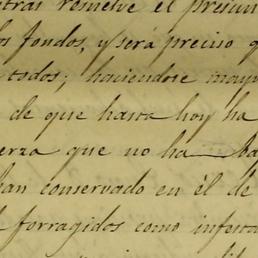 tras resuelve el presu
os fondos, y será preciso q
todos; haciendose mayo
de que hasta hoy ha
erza que no ha ba
han conservado en él de
forragidos como infest